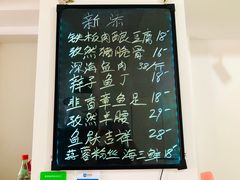 新菜
铁板肉酿豆腐 18
孜然猪脆骨 16
深海鱼肉 38/斤
鲜子鱼丁 18
韭香章鱼足 28
孜然羊腰 29
鱼跃吉祥 28
蒜蓉粉丝海三鲜 18